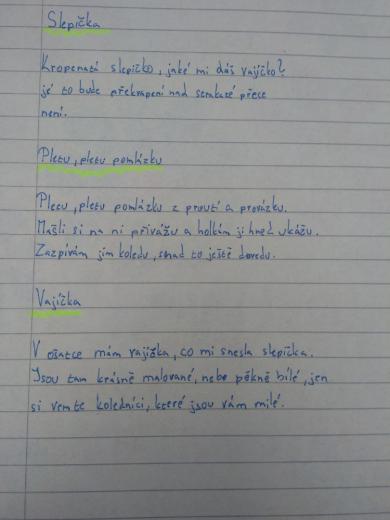 Slepička
Kropenatá slepičko, jaké mi dáš vajíčko?
jé to bude překvapení nad strakaté přece
není.
Pletu, pletu pomlázku
Pletu, pletu pomlázku z proutí a provázku.
Mašli si na ni přivážu a holkám ji hned ukážu.
Zazpívám jim koledu, snad to ještě dovedu.
Vajíčka
V ošatce mám vajíčka, co mi snesla slepička.
Jsou tam krásně malované, nebo pěkně bílé, jen
si vemte koledníci, které jsou vám milé.